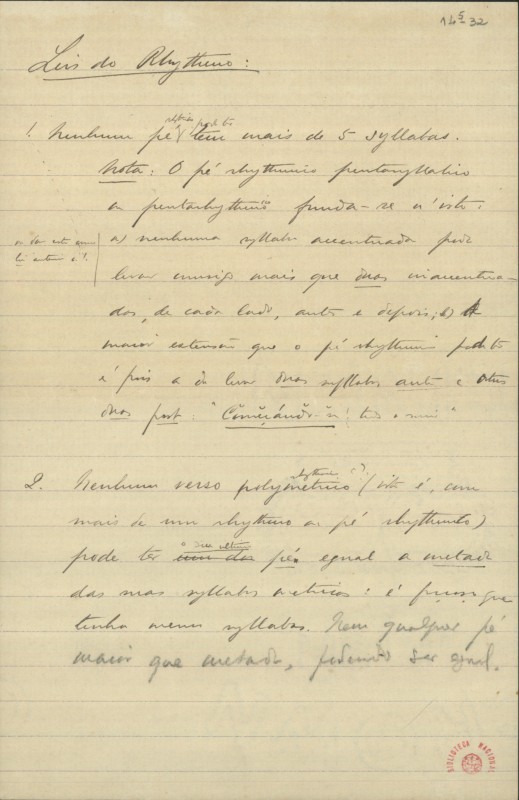 14⁵ 32
Leis do Rhythmo:
rhythmico pode ter
1. Nenhum pé tem mais de 5 syllabas.
Nota: O pé rhythmico pentasyllabico
ou pentarhythmico funda-se n'isto:
a) nenhuma syllaba accentuada pode
levar comsigo mais que duas inaccentua-
das, de cada lado, antes e depois; b) A
maior extensão que o pé rhythmico pode ter
é pois a de levar duas syllabas ante e outras
duas post: "Começándo-se
rhythmico (?)
2. Nenhum verso polymetrico (isto é, com
mais de um rhythmo ou pé rhythmico)
o seu ultimo
pode ter um dos pés egual a metade
das suas syllabas metricas: é preciso que
tenha menos syllabas. Nem qualquer pé
maior que metade, podendo ser egual.
BIBLIOTECA NACIONAL